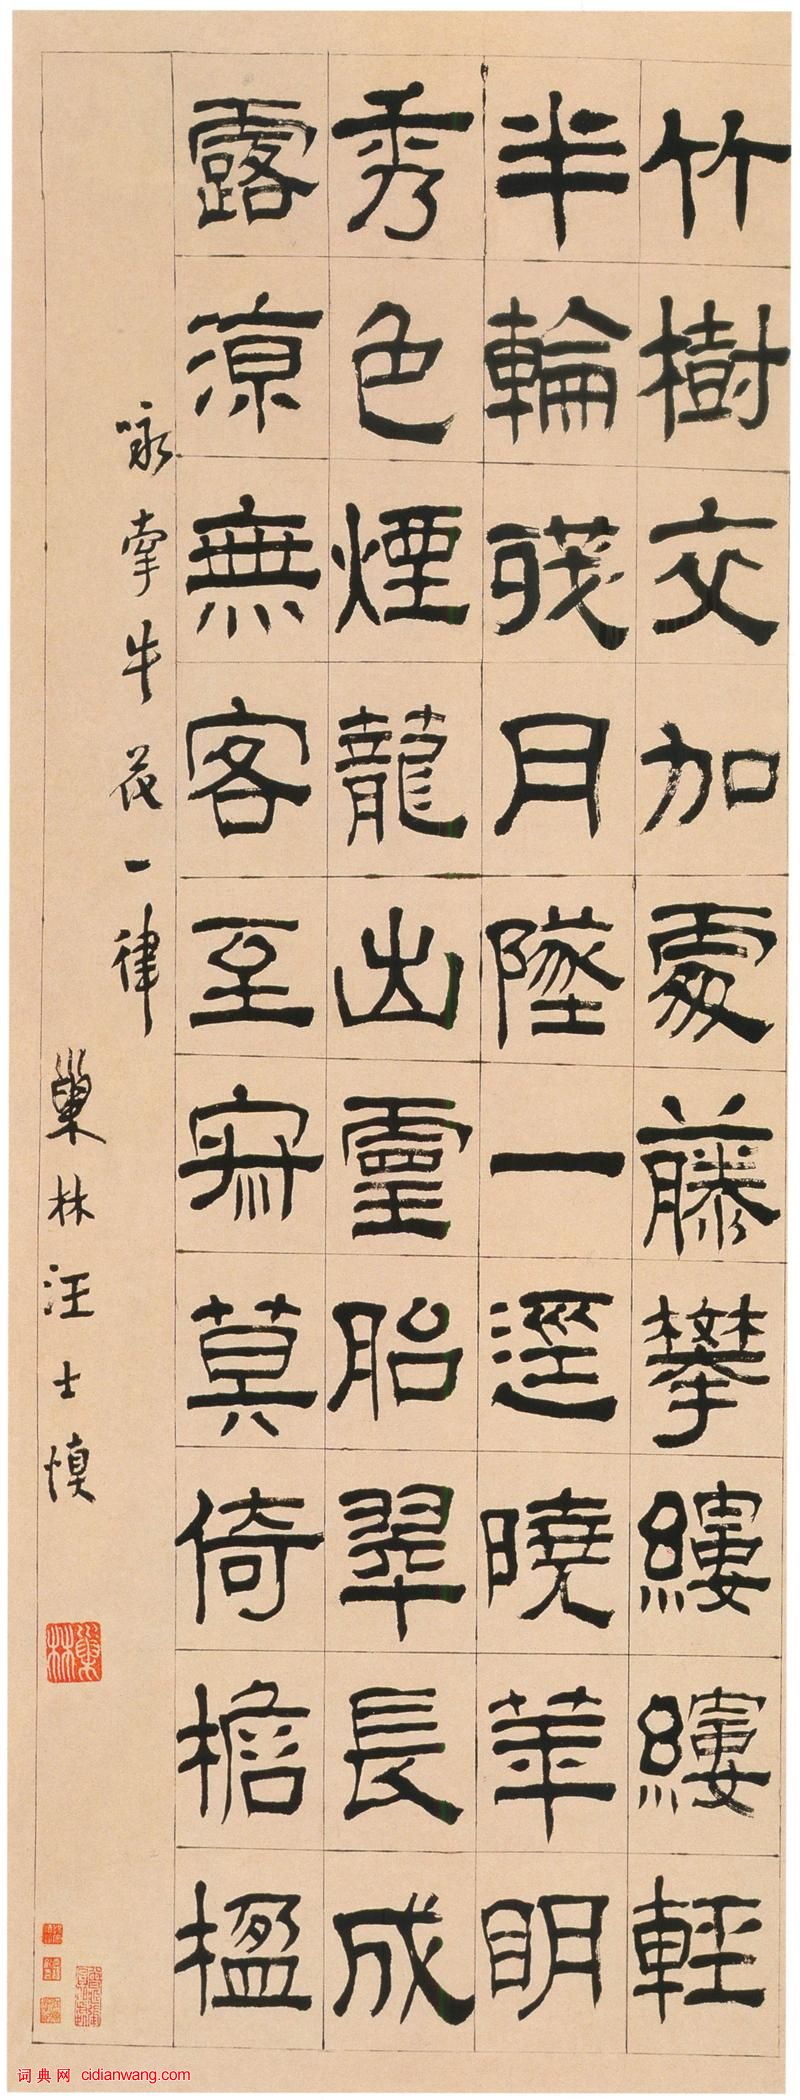 竹樹交加處藤攀縷縷輕
半輪殘月墜一逕曉華明
秀色煙籠出靈胎翠長成
露涼無客至寂莫倚檐楹
咏牽牛花一律
巢林汪士慎
巢林
词典网 cidianwang.com